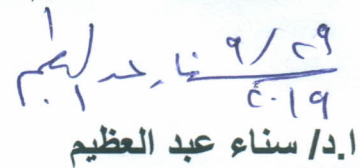 سناء عبد العظيم ٢٩/٩
٢٠١٩
ا.د/ سناء عبد العظيم